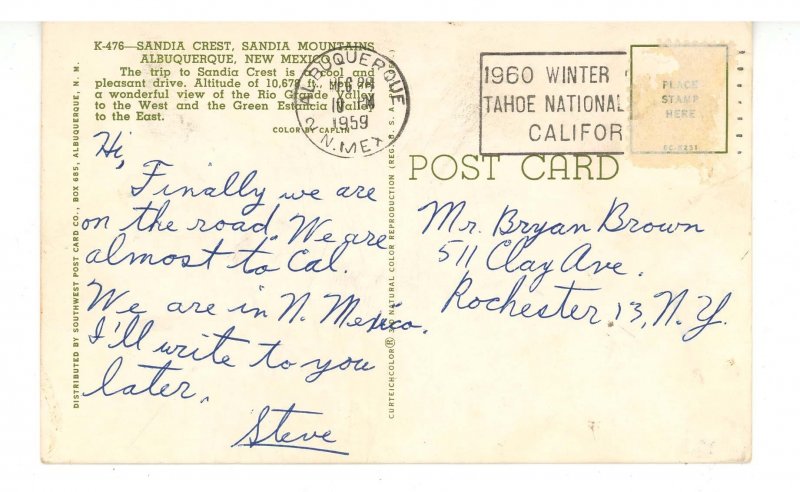 K-476—SANDIA CREST, SANDIA MOUNTAINS
ALBUQUERQUE, NEW MEXICO
The trip to Sandia Crest is a cool and
pleasant drive. Altitude of 10,678 ft.,
a wonderful view of the Rio Grande Valley
to the West and the Green Estancia Valley
to the East.
COLOR BY CAPLIN
Hi,
Finally we are
on the road. We are
almost to Cal.
We are in N. Mexico.
I'll write to you
later.
Steve
DISTRIBUTED BY SOUTHWEST POST CARD CO., BOX 685, ALBUQUERQUE, N. M.
CURTEICHCOLOR® NATURAL COLOR REPRODUCTION (REG. U. S. A.
ALBUQUERQUE
PM
1959
2 N. MEX.
1960 WINTER
TAHOE NATIONAL
CALIFOR
PLACE
STAMP
HERE
POST CARD
Mr. Bryan Brown
511 Clay Ave.
Rochester 13, N.Y.